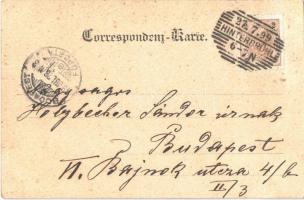 Correspondenz-Karte.
26.7.99
HINTERBRÜHL
6-7N
BUDAPEST
Nagyságos
Holzbecher Sándor úrnak
Budapest
VI. Bajnok utcza 4/b
II/3